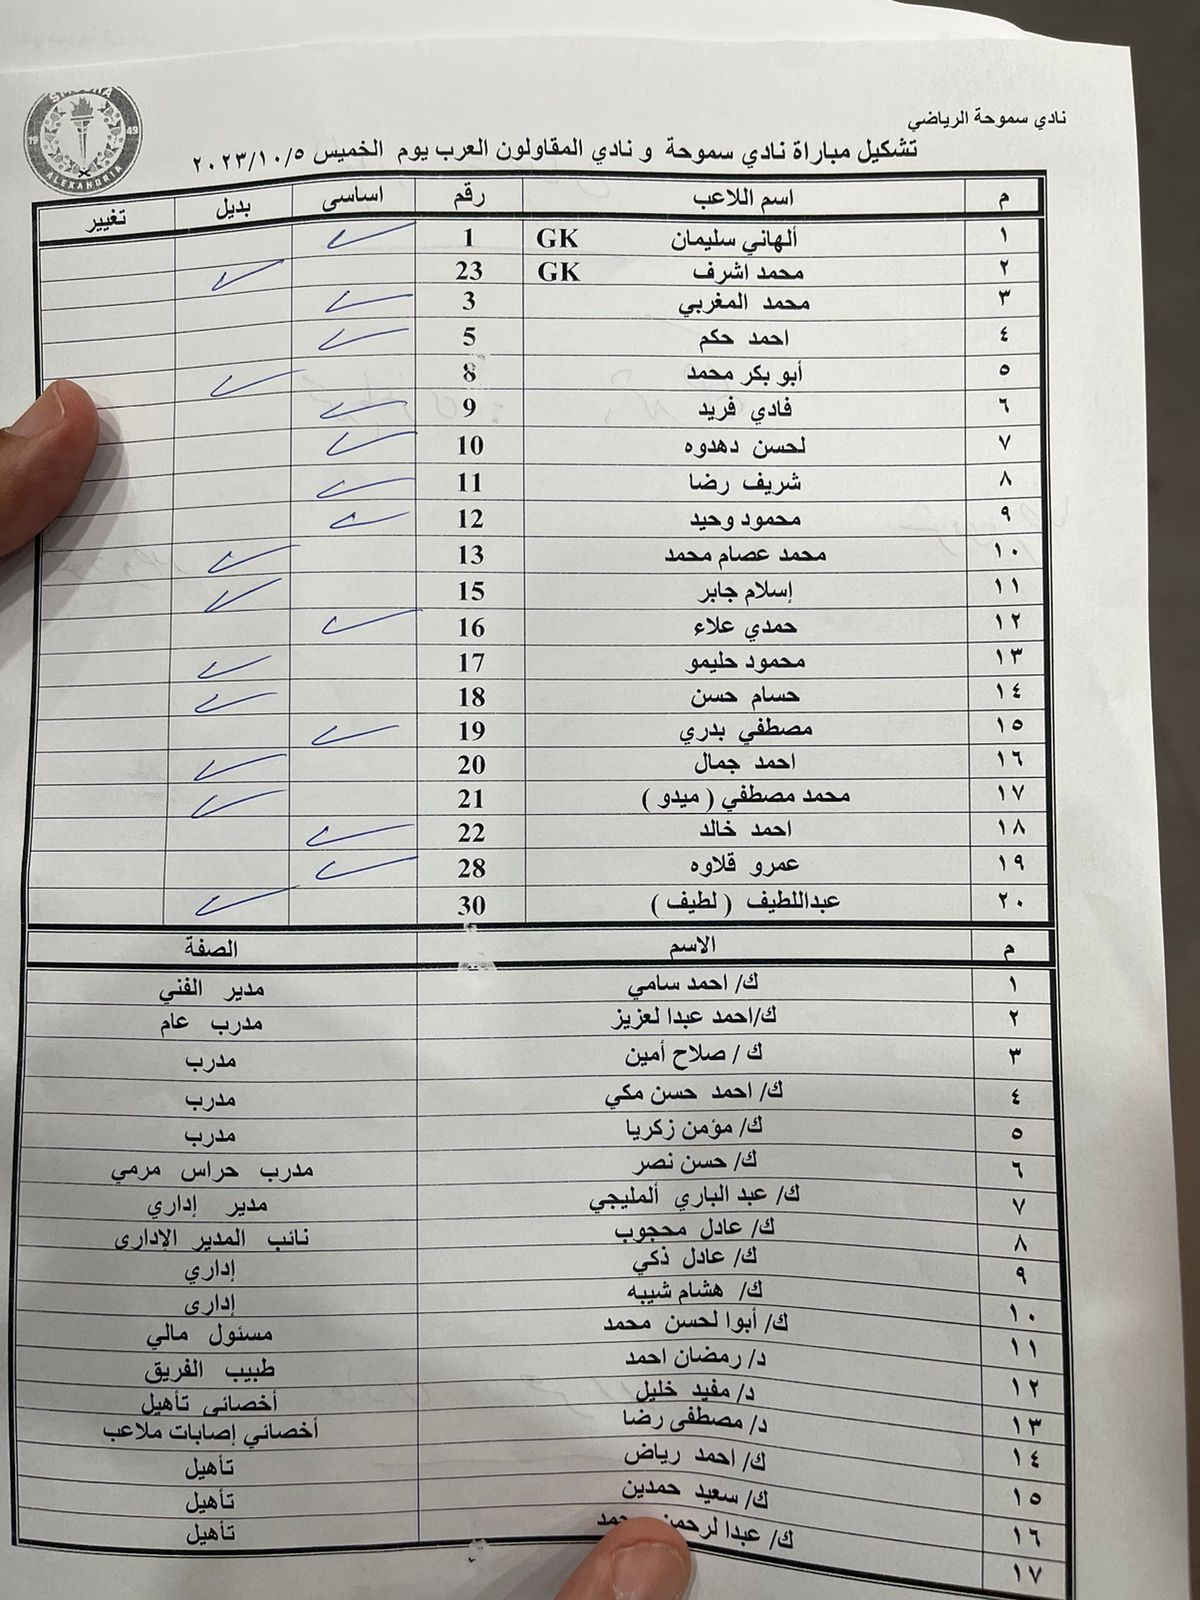 SMOUHA
19 49
ALEXANDRIA
نادي سموحة الرياضي
تشكيل مباراة نادي سموحة و نادي المقاولون العرب يوم الخميس ٢٠٢٣/١٠/٥
م اسم اللاعب رقم اساسى بديل تغيير
١ ألهاني سليمان GK 1
٢ محمد اشرف GK 23
٣ محمد المغربي 3
٤ احمد حكم 5
٥ أبو بكر محمد 8
٦ فادي فريد 9
٧ لحسن دهدوه 10
٨ شريف رضا 11
٩ محمود وحيد 12
١٠ محمد عصام محمد 13
١١ إسلام جابر 15
١٢ حمدي علاء 16
١٣ محمود حليمو 17
١٤ حسام حسن 18
١٥ مصطفي بدري 19
١٦ احمد جمال 20
١٧ محمد مصطفي ( ميدو ) 21
١٨ احمد خالد 22
١٩ عمرو قلاوه 28
٢٠ عبداللطيف ( لطيف ) 30
م الاسم الصفة
١ ك/ احمد سامي مدير الفني
٢ ك/احمد عبدا لعزيز مدرب عام
٣ ك / صلاح أمين مدرب
٤ ك/ احمد حسن مكي مدرب
٥ ك/ مؤمن زكريا مدرب
٦ ك/ حسن نصر مدرب حراس مرمي
٧ ك/ عبد الباري ألمليجي مدير إداري
٨ ك/ عادل محجوب نائب المدير الإدارى
٩ ك/ عادل ذكي إداري
١٠ ك/ هشام شيبه إدارى
١١ ك/ أبوا لحسن محمد مسئول مالي
١٢ د/ رمضان احمد طبيب الفريق
١٣ د/ مفيد خليل أخصائى تأهيل
١٤ د/ مصطفى رضا أخصائي إصابات ملاعب
١٥ ك/ احمد رياض تأهيل
١٦ ك/ سعيد حمدين تأهيل
١٧ ك/ عبدا لرحمن تأهيل